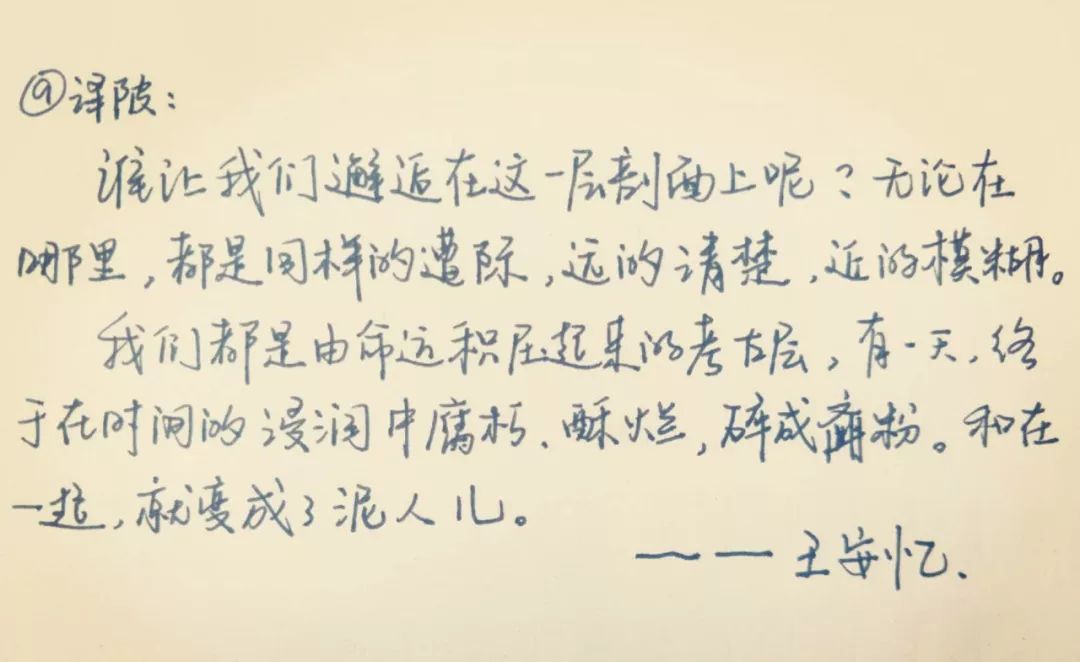 @译陂：
谁让我们邂逅在这一层剖面上呢？无论在
哪里，都是同样的遭际，远的清楚，近的模糊。
我们都是由命运积压起来的考古层，有一天，终
于在时间的浸润中腐朽、酥烂，碎成齑粉。和在
一起，就变成了泥人儿。
——王安忆.